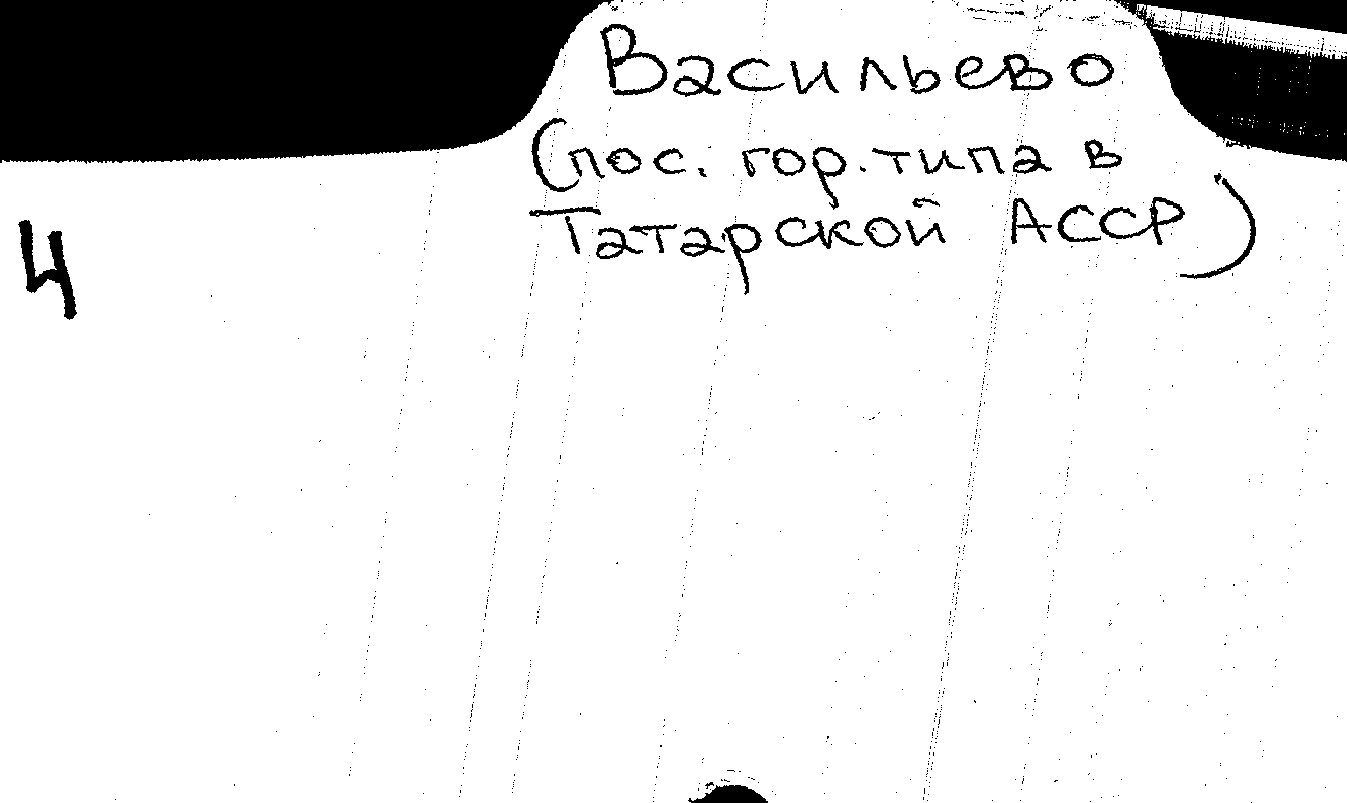 Васильево
(пос. гор. типа в
Татарской АССР)
4